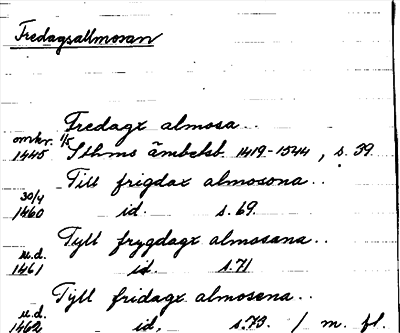 Fredagsallmosan
Fredagx almosa..
omkr. 1/5
1445 Sthms ämbetsb. 1419-1544, s. 39
Till frigdax almosona..
30/4
1460 id. s. 69.
Tyll frygdagx almosana..
u.d.
1461 id. s. 71
Tyll fridagx almosena..
u.d.
1462 id, s. 73. / m. fl.